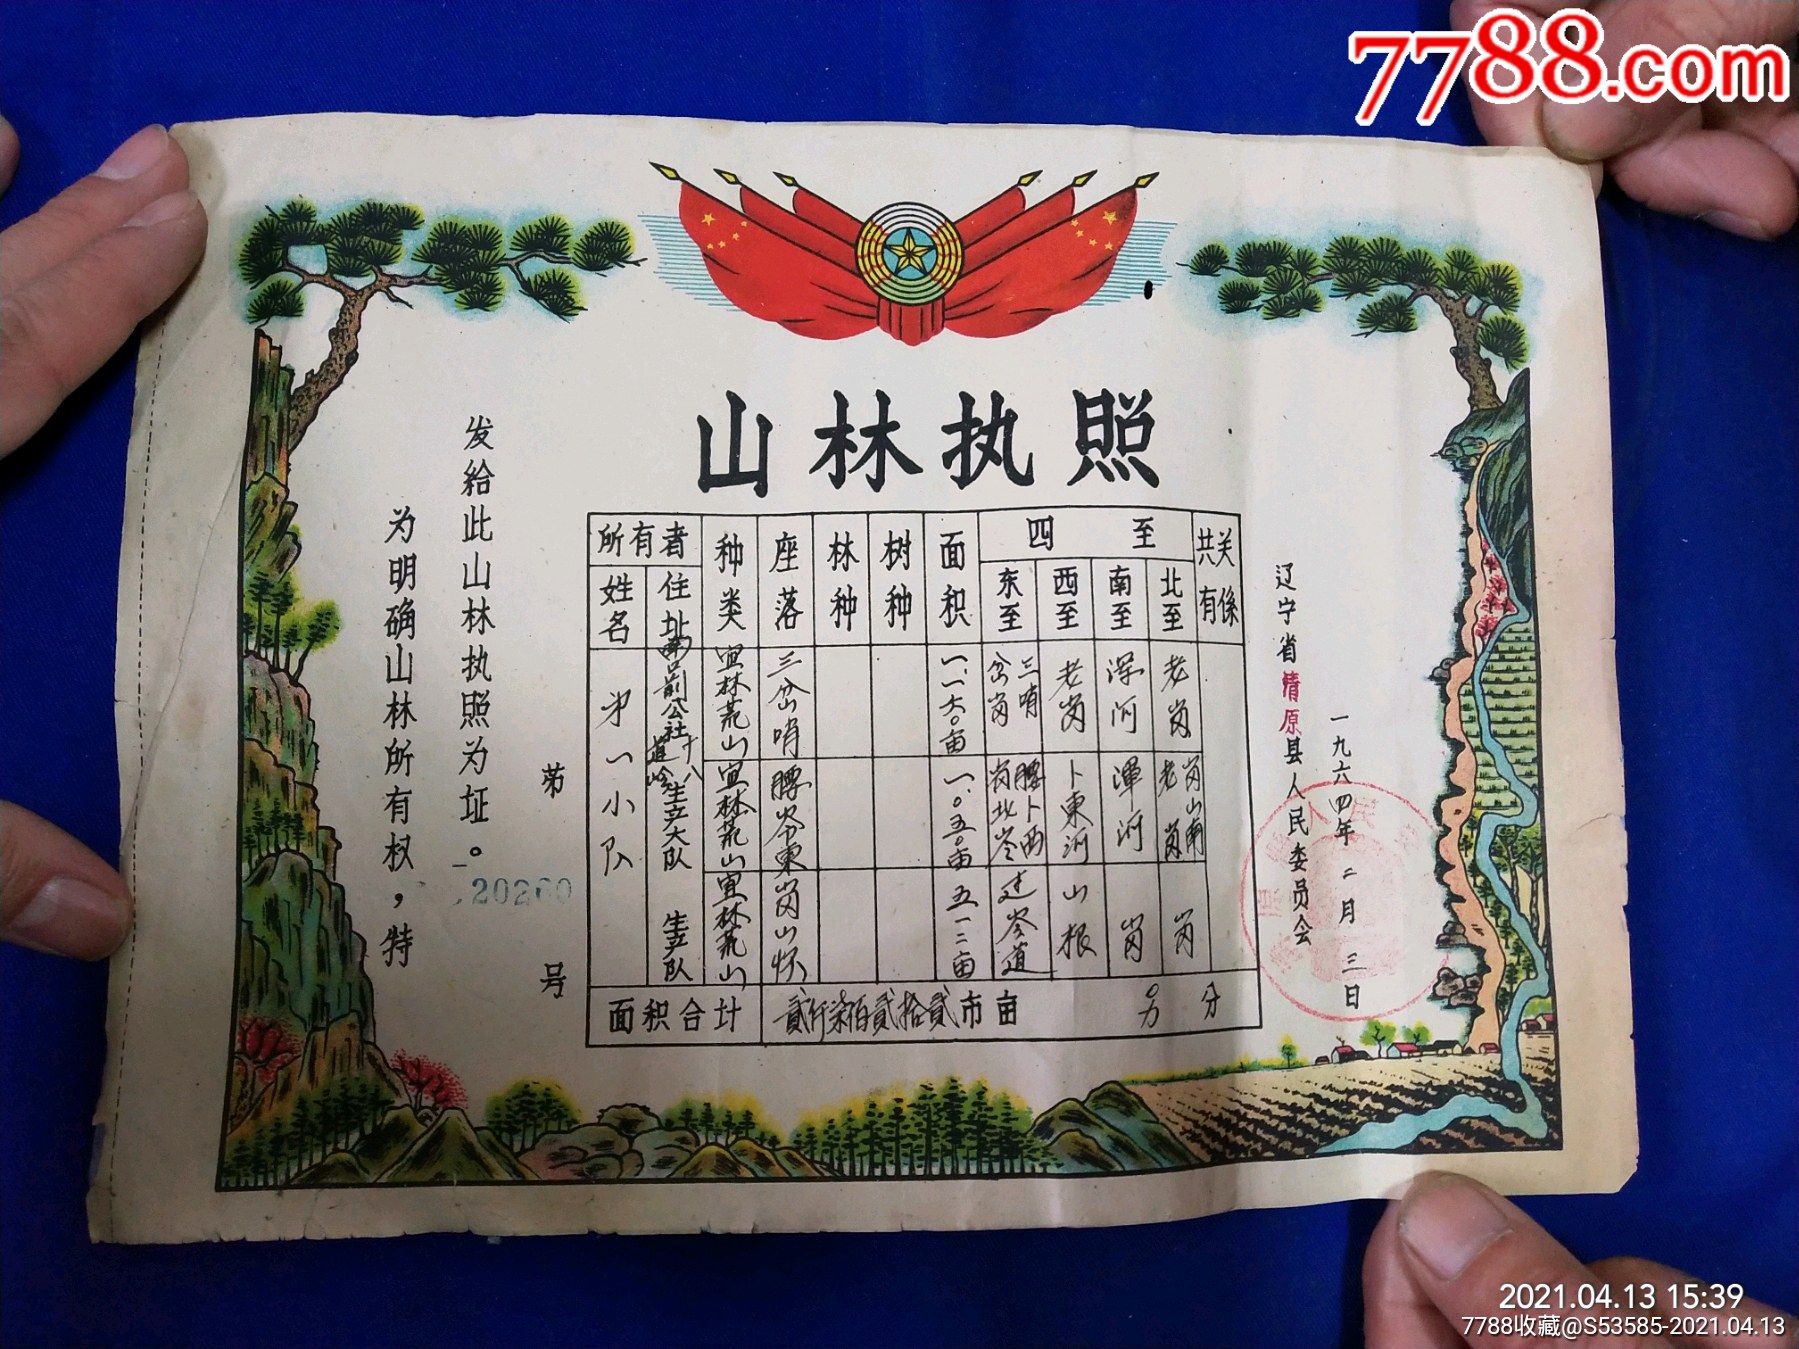 7788.com
山林执照
为明确山林所有权，特
发给此山林执照为址。
第 20260 号
所有者 种类 座落 林种 树种 面积 四至 共有关係
姓名 住址 东至 西至 南至 北至
第一小队 南口前公社 十八道岭 生产大队 生产队
宜林荒山 三岔哨 一一六〇亩 三哨岔岗 老岗 浑河 老岗
宜林荒山 腰岺東 一〇五〇亩 渾河
宜林荒山 五一二亩 过岺道 山根 岗 岗
面积合计 貳仟柒佰貳拾貳市亩 分
辽宁省清原县人民委员会
一九六四年二月三日
2021.04.13 15:39
7788收藏@S53585-2021.04.13